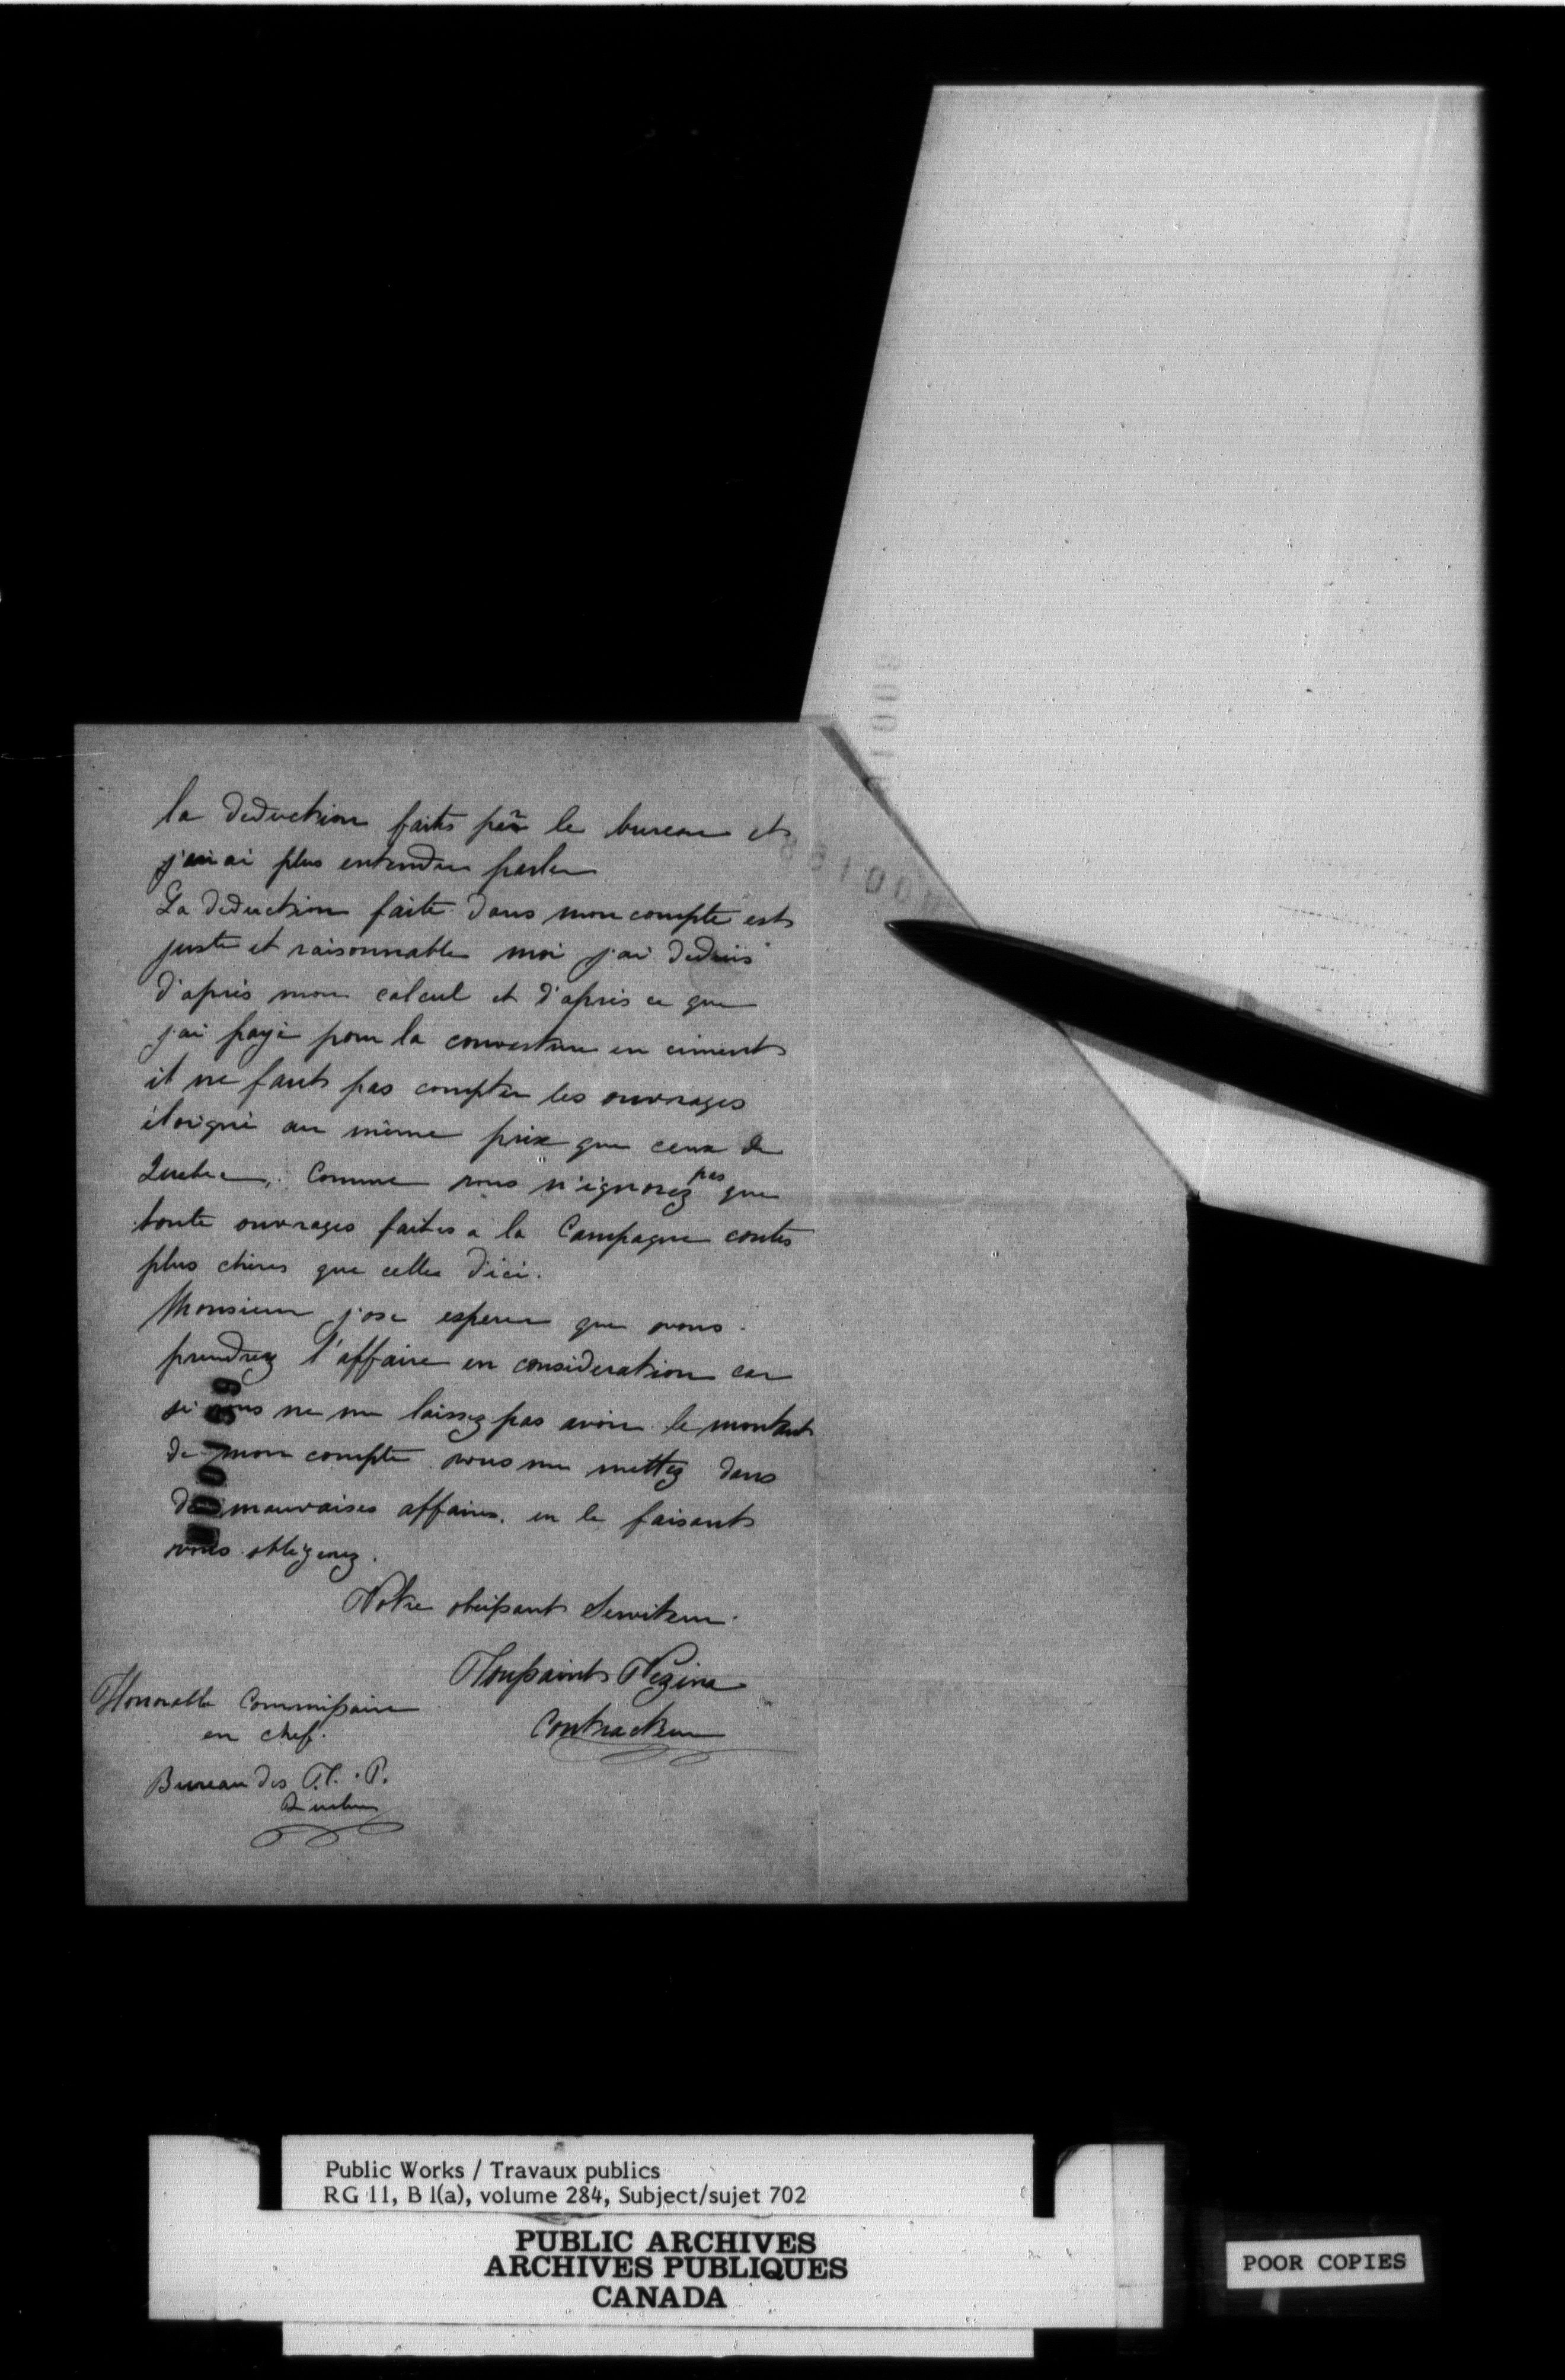 la deduction faite par le bureau et
j'en ai plus entendu parler
La deduction faite dans mon compte est
juste et raisonnable moi j'ai deduis
d'après mon calcul et d'après ce que
j'ai payé pour la couverture en ciment
il ne faut pas compter les ouvrages
éloigné au même prix que ceux de
Quebec, Comme vous n'ignorez pas que
toute ouvrages faites a la Campagne coutes
plus chères que celles d'ici.
Monsieur j'ose esperer que vous
prendrez l'affaire en consideration car
si vous ne me laissez pas avoir le montant
de mon compte vous me mettez dans
de mauvaises affaires. en le faisant
vous obligerez.
Votre obeissant Serviteur.
Toussaint Vezina
Contracteur
Honorable Commissaire
en chef.
Bureau des T. P.
Quebec
Public Works / Travaux publics
RG 11, B 1(a), volume 284, Subject/sujet 702
PUBLIC ARCHIVES
ARCHIVES PUBLIQUES
CANADA
POOR COPIES